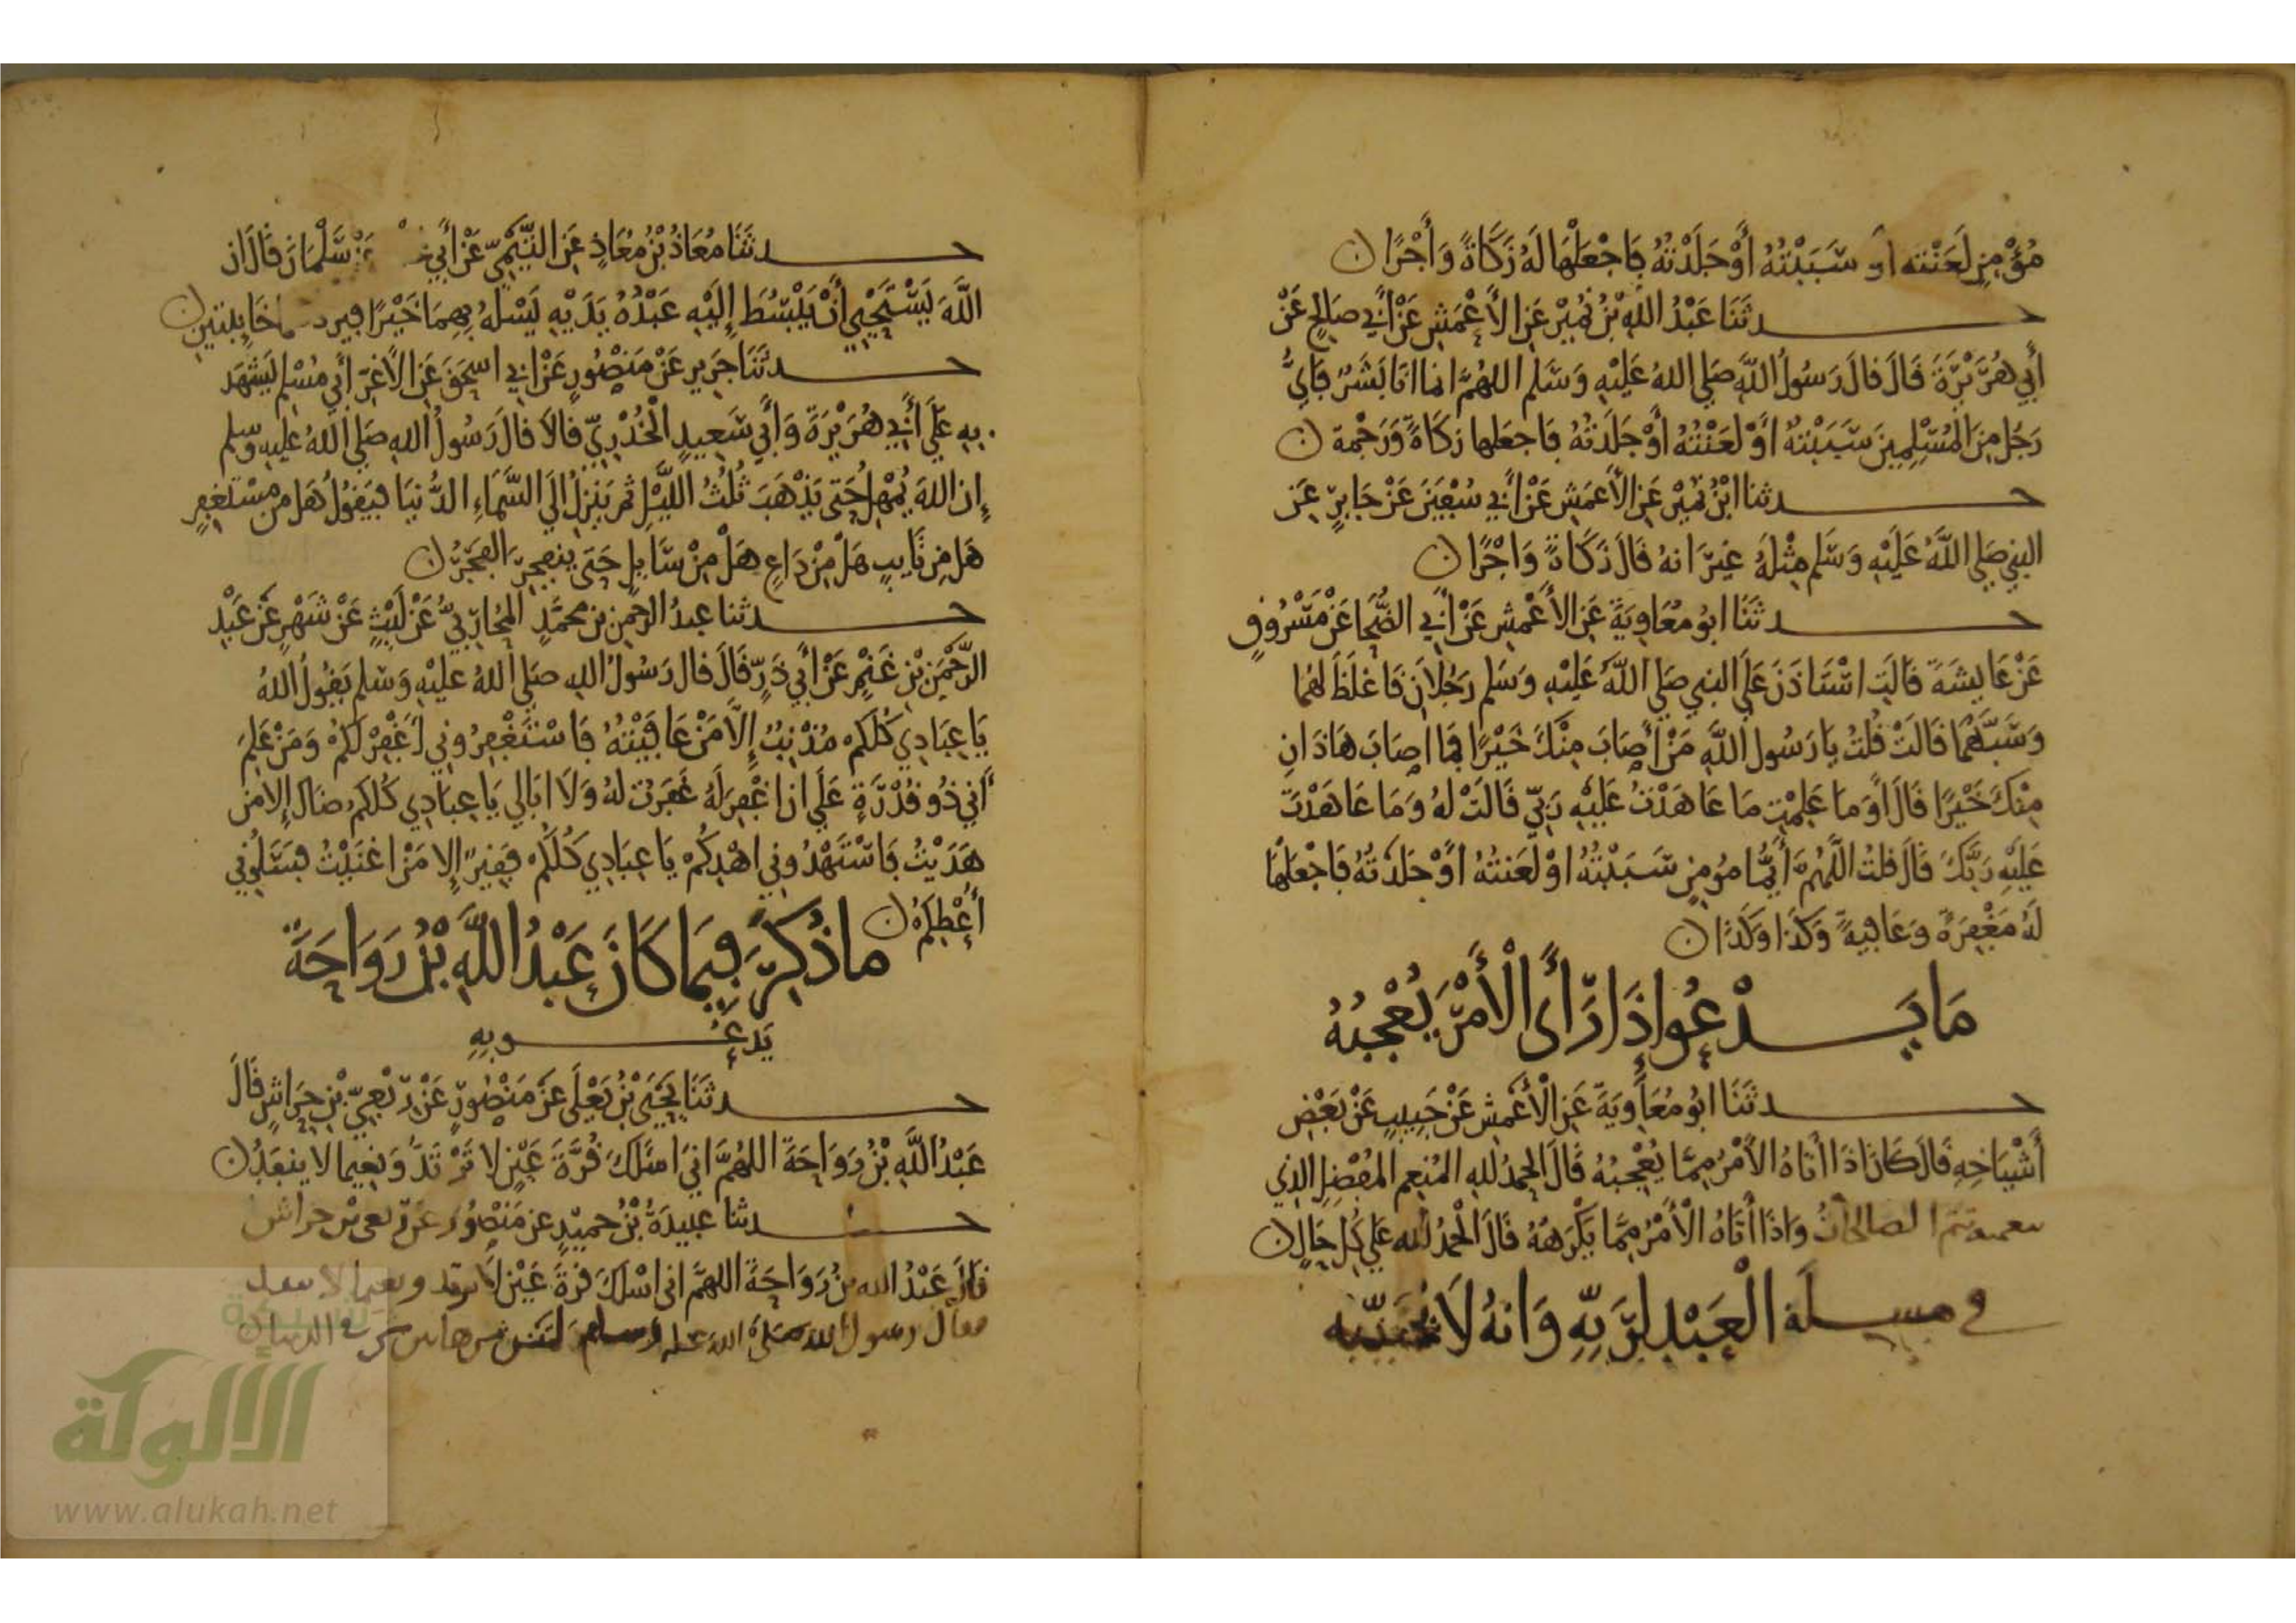 مُؤْمِنٍ لَعَنْته أو سَبَبْتُهُ أَوْ جَلَدْتُهُ فَاجْعَلْهَا لَهُ زَكَاةً وَأَجْرًا ن
حــدثَنَا عَبْدُ اللهِ بْنُ نُمَيْرٍ عَنِ الأَعْمَشِ عَنْ أَبِي صَالِحٍ عَنْ
أَبِي هُرَيْرَةَ قَالَ قالَ رَسُولُ اللَّهِ صَلي اللهُ عَلَيْهِ وَسَلم اللهُمَّ انما انَا بَشَرٌ فَايُّ
رَجُلٍ مِنَ المُسْلِمِينَ سَبَبْتهُ اَوْ لَعَنْتُهُ أَوْ جَلَدتُهُ فَاجعَلها زكَاةً وَرَحْمة ن
حــدثنا ابْنُ نُمَيْرٍ عَنِ الأَعمَشِ عَنْ أَبِي سُفْيَنَ عَنْ جَابِرٍ عَنِ
النبي صَلي اللَّهُ عَلَيْهِ وَسَلم مِثْلَهُ غَيْرَ انهُ قَالَ زَكَاةً وَاجْرًا ن
حــدثَنَا ابُو مُعَاوِيَةَ عَنِ الأَعْمَشِ عَنْ أَبِي الضُّحَا عَنْ مَسْرُوقٍ
عَنْ عَايِشَةَ قَالَتِ اسْتَاذَنَ عَلَي النبي صَلي اللَّهُ عَلَيْهِ وَسَلم رَجُلاَنِ فَاغلَظَ لهُمَا
وَسَبَّهُمَا قَالَتْ قُلتُ يَا رَسُولَ اللَّهِ مَنْ أَصَابَ مِنْكَ خَيْرًا فمَا اصَابَ هَاذَانِ
مِنْكَ خَيْرًا قَالَ اَوَمَا عَلِمْتِ مَا عَاهَدْتُ عَلَيْهِ رَبِّي قَالَتْ لهُ وَمَا عَاهَدْتَ
عَلَيْهِ رَبَّكَ قَالَ قلتُ اللَّهُمَّ أَيُّمَا مُومِنٍ سَبَبْتُهُ اوْ لَعَنتُهُ اَوْ جَلَدتُهُ فَاجْعَلْهَا
لَهُ مَغْفِرَةً وَعَافِيةً وَكَذَا وَكَذَا ن
مَا يَــدْعُوا إِذَا رَأَى الْأَمْرَ يُعْجِبُهُ
حــدثَنَا ابُو مُعَاوِيَةَ عَنِ الأَعْمَشِ عَنْ حَبِيبٍ عَنْ بَعْضِ
أَشْيَاخِهِ قَالَ كَانَ اذَا أَتَاهُ الأَمْرُ مِمَّا يُعْجِبُهُ قَالَ الحمدُ للهِ المُنعِمِ المُفْضِلِ الذِي
بنعمته تتم الصالحاتُ وَاذَا أَتَاهُ الْأَمْرُ مِمَّا يَكْرَهُهُ قَالَ الْحَمْدُ لله عَلي كُل حَالٍ ن
في مسلَة الْعَبْدِ لِرَبِّهِ وَانهُ لَا يُخَيّبه
حــدثَنَا مُعَاذُ بْنُ مُعَاذٍ عَنِ التَّيْمِيّ عَنْ أَبِي عَنْ سَلْمَانَ قَالَ ان
اللَّهَ لَيَسْتَحْيِي أَنْ يَبْسُطَ إِلَيْهِ عَبْدُهُ يَدَيْهِ يَسْلهُ بِهِمَا خَيْرًا فيرد خَايِبَتَيْنِ ن
حــدثَنَا جَرِير عَنْ مَنْصُورٍ عَنْ ابي اسحَقَ عَنِ الأَغَرِّ أَبِي مُسْلِمٍ يَشهَد
بِهِ عَلَى أَبِي هُرَيْرَةَ وَأَبِي سَعِيدٍ الْخُدْرِيِّ قالاَ قالَ رَسُولُ اللهِ صَلي اللهُ عَلَيهِ وسلم
إِن اللهَ يُمْهِلُ حَتى يَذْهَبَ ثُلُثُ اللَّيْلِ ثم يَنزِلُ إلَي السَّمَاءِ الدُّنيَا فيَقُولُ هَل من مسْتَغفِرٍ
هَل مِن تَايِبٍ هَلْ مِنْ دَاعٍ هَلْ مِنْ سَايِلٍ حَتى ينفجِرَ الفَجْرُ ن
حــدثنا عبدُ الرحمنِ بن محمَّدٍ المُحارِبيُّ عَنْ لَيْثٍ عَنْ شَهْرٍ عَنْ عَبْدِ
الرَّحْمَنِ بْنِ غَنْمٍ عَنْ أَبِي ذَرٍّ قَالَ قال رَسُولُ اللهِ صَلي اللهُ عَليْهِ وَسَلم يَقُولُ اللهُ
يَا عِبَادِي كُلكم مُذْنِبٌ إِلاَّ مَنْ عَافَيْتُهُ فَاسْتَغْفِرُونِي أَغْفِرْ لَكُمْ وَمَنْ عَلِمَ
أَنِي ذُو قُدْرَةٍ عَلَي ان اغْفِرَ لَهُ غَفَرت لهُ وَلَا ابَالِي يَا عِبَادِي كُلكم ضَال إِلا من
هَدَيْتُ فَاسْتَهْدُونِي اهْدِكُم يَا عِبَادِي كُلكُم فَقِيرٌ إِلا مَنْ اغنَيْتُ فسَلُونِي
أُعْطِكُمْ ن
ما ذُكِرَ فِيمَا كَانَ عَبْدُ اللَّهِ بْنُ رَوَاحَةَ
يَدعُــو بِهِ
حــدثَنَا يَحْيَى بْنُ يَعْلَى عَنْ مَنْصُورٍ عَنْ رِبْعِيِّ بْنِ حِرَاشٍ قَالَ
عَبْدُ اللَّهِ بْنُ رَوَاحَةَ اللهُمَّ انِيَ اسَلكَ قُرَّةَ عَيْنٍ لا تَرْتَدُّ وَنَعِيما لا ينفَدُ ن
حــدثنا عبيدَةُ بْنُ حميْدٍ عن مَنْصُورٍ عَنْ ربعي بن حراش
قَالَ عَبْدُ الله بنُ رَوَاحَةَ اللهمَّ اني اسْلكَ قرةَ عَيْنٍ لا ترتد ونعيما لا ينفد
فقال رسول الله صَلى الله عليه وسلم